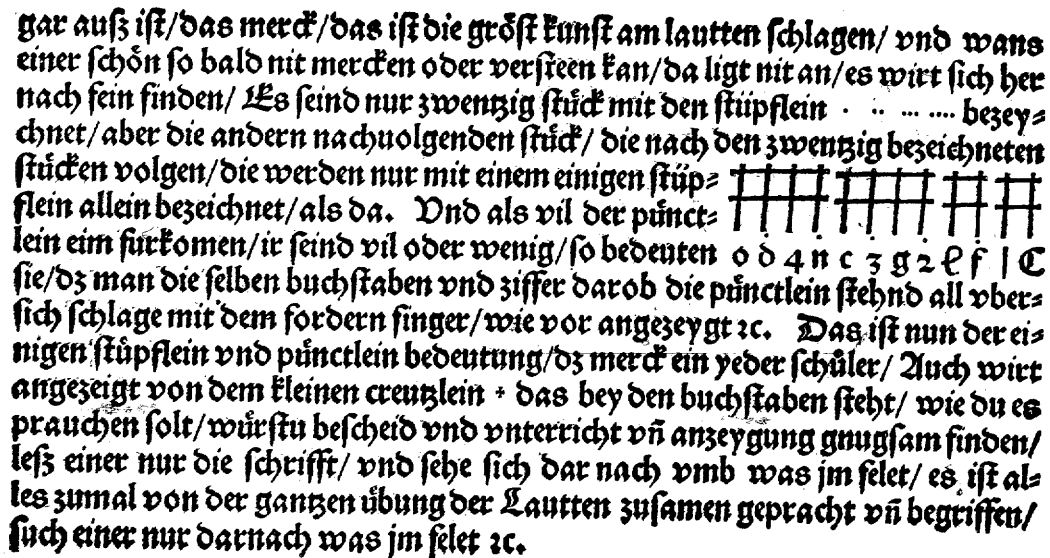 gar auſz iſt/das merck/das iſt die gröſt kunſt am lautten ſchlagen/ vnd wans
einer ſchön ſo bald nit mercken oder verſteen kan/da ligt nit an/es wirt ſich her
nach fein finden/ Es ſeind nur zwentzig ſtück mit den ſtüpflein · ·· ··· ···· bezey⸗
chnet/aber die andern nachuolgenden ſtück/ die nach den zwentzig bezeichneten
ſtücken volgen/die werden nur mit einem einigen ſtüp⸗
flein allein bezeichnet/als da. Vnd als vil der pünct⸗
lein eim fürkomen/ir ſeind vil oder wenig/ſo bedeuten o d 4 n c z g 2 ł f | C
ſie/dz man die ſelben buchſtaben vnd ziffer darob die pünctlein ſtehnd all vber⸗
ſich ſchlage mit dem fordern finger/wie vor angezeygt ꝛc. Das iſt nun der ei⸗
nigen ſtüpflein vnd pünctlein bedeutung/dz merck ein yeder ſchůler/ Auch wirt
angezeigt von dem kleinen creutzlein + das bey den buchſtaben ſteht/ wie du es
prauchen ſolt/würſtu beſcheid vnd vnterricht vñ anzeygung gnugſam finden/
leſz einer nur die ſchrifft/ vnd ſehe ſich dar nach vmb was jm felet/ es iſt al⸗
les zumal von der gantzen übung der Lautten zuſamen gepracht vñ begriffen/
ſuch einer nur darnach was jm felet ꝛc.